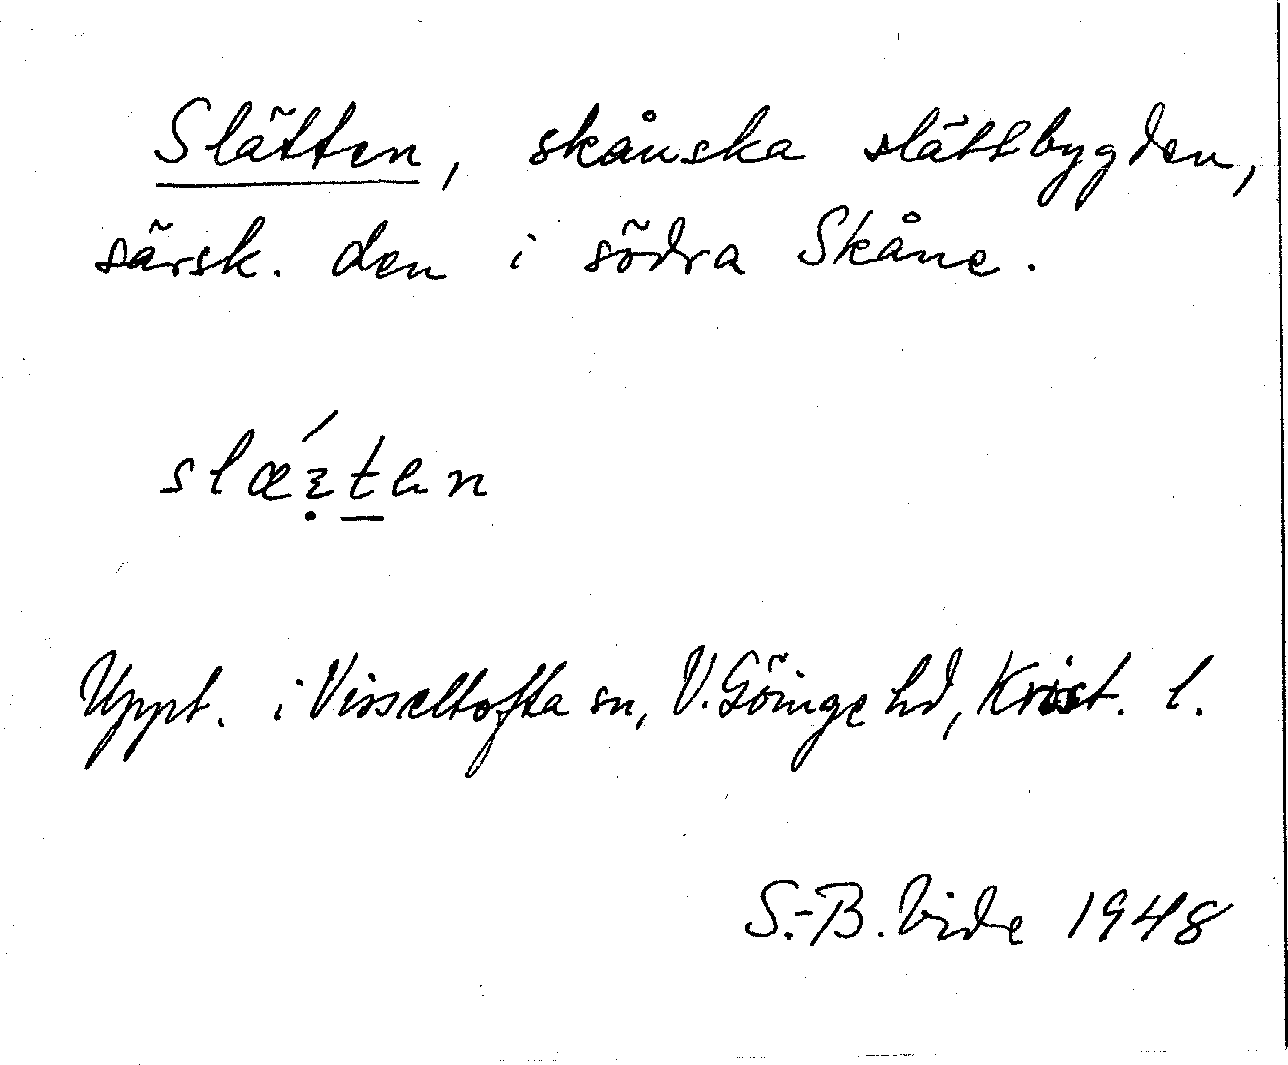 Slätten, skånska slättbygden,
särsk. den i södra Skåne.
Uppt. i Visseltofta sn, V. Göinge hd, Krist. l.
S.-B. Vide 1948